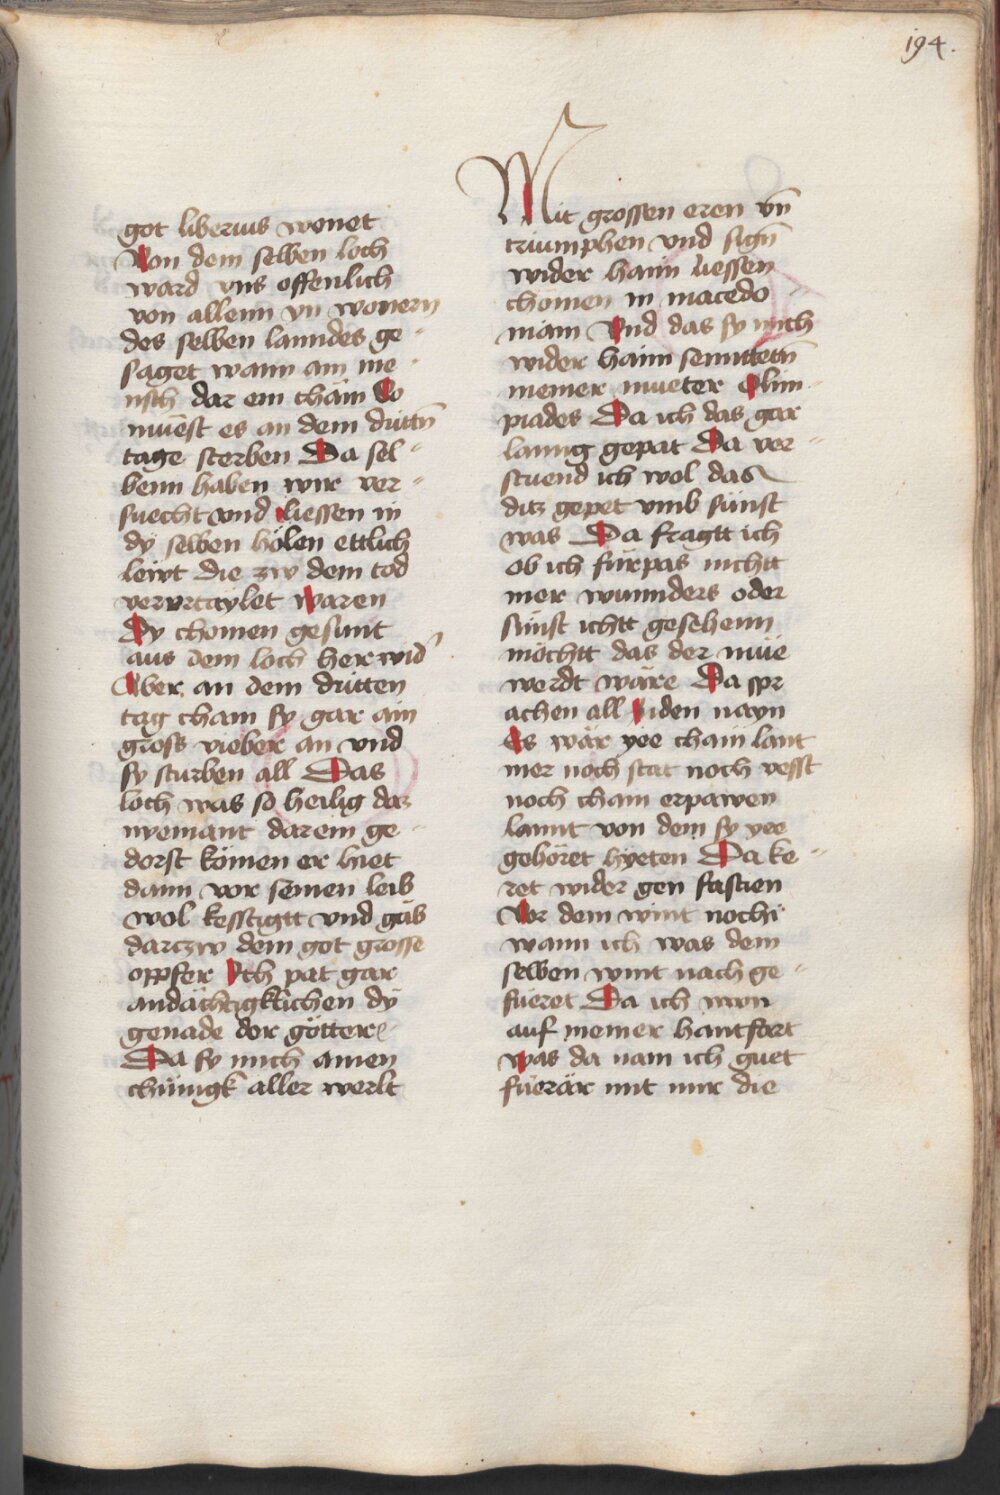 194.
got liberius wonet
Von dem selben loch
ward vns offenlich
von allenn yn wonern
des selben lanndes ge-
saget wann am me-
nsch dar ein cham So
muest es an dem drittn̄
tage sterben Da sel-
benn haben wir ver-
suecht vnd liessen in
dy selben hölen ettlich
lewt die zw dem tod
verurtaylet waren
Dy chomen gesunt
aus dem loch her wid'
Aber an dem dritten
tag cham sy gar ain
gross vieber an vnd
sy sturben all Das
loch was so heilig daz
nyemant darein ge-
dorst kömen er hiet
dann vor seinen leib
wol kesstigtt vnd gab
darczw dem got grosse
oppfer Ich pat gar
andächtigklichen dy
genade der götter
Da sy mich amen
chünigk aller werlt
Mit grossen eren vn̄
triumphen vnd sign̄
wider haim liessen
chomen in macedo-
niam Vnd das sy mich
wider haim senntten̄
meiner mueter Olim-
piades Da ich das gar
lanng gepat Da ver-
stuend ich wol das
ditz gepet vmb sunst
was Da fragtt ich
ob ich fürpas nichtt
mer wunnders oder
sunst ichtt gesehenn
möchtt das der müe
werdt wäre Da spr
achen all Inden nayn
Es wär yee chain lant
mer noch stat noch vesst
noch cham erpawen
lannt von dem sy yee
gehöret hyeten Da ke-
ret wider gen fastien
Vor dem wint nochi
wann ich was dem
selben wint nach ge-
füeret Da ich nun
auf meiner hantfart
was da nam ich guet
füerär mit mir die